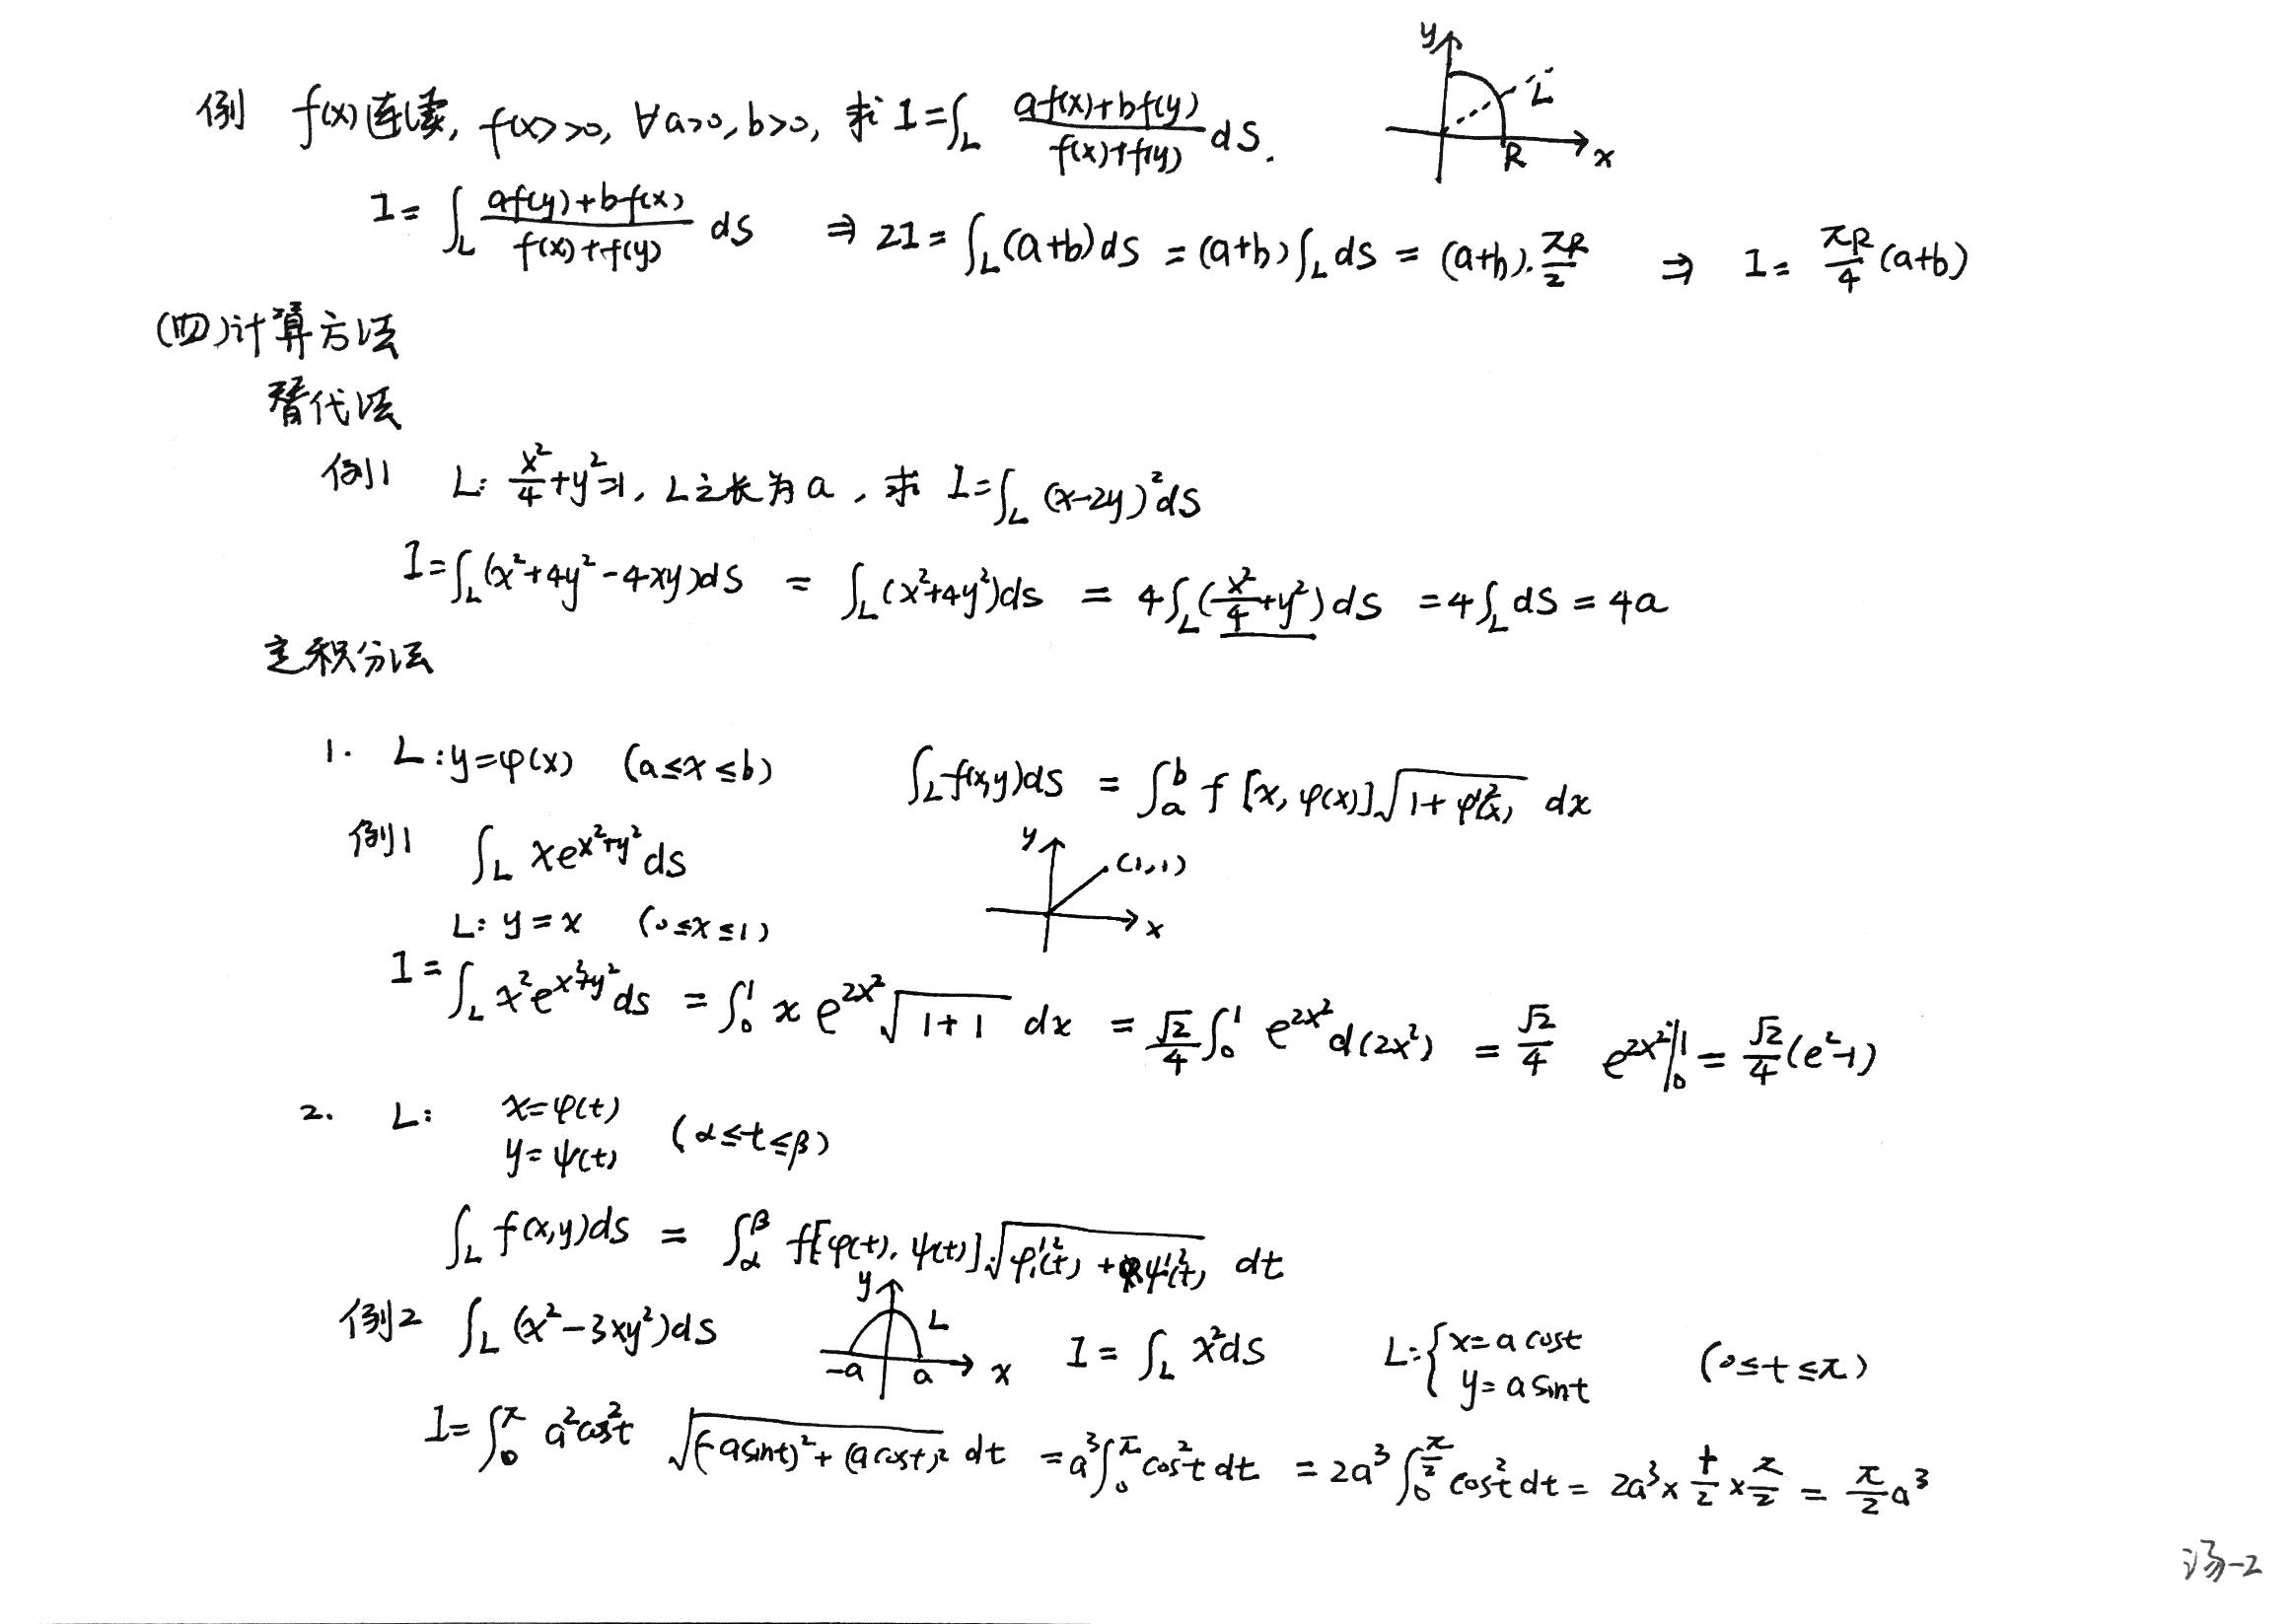 例 f(x)连续, f(x)>0, ∀a>0, b>0, 求 I=∫_L (af(x)+bf(y))/(f(x)+f(y)) dS.
y L R x
I=∫_L (af(y)+bf(x))/(f(x)+f(y)) dS ⇒ 2I=∫_L(a+b)dS=(a+b)∫_L dS=(a+b)·πR/2 ⇒ I=πR/4(a+b)
(四)计算方法
替代法
例1 L: x²/4+y²=1, L之长为a, 求 I=∫_L (x-2y)²dS
I=∫_L(x²+4y²-4xy)dS=∫_L(x²+4y²)ds=4∫_L(x²/4+y²)dS=4∫_L dS=4a
定积分法
1. L:y=φ(x) (a≤x≤b) ∫_L f(x,y)dS=∫_a^b f[x,φ(x)]√(1+φ'²(x)) dx
例1 ∫_L xe^(x²+y²)ds
y (1,1) x
L: y=x (0≤x≤1)
I=∫_L x²e^(x²+y²)ds=∫_0^1 x e^(2x²)√(1+1) dx=√2/4∫_0^1 e^(2x²)d(2x²)=√2/4 e^(2x²)|_0^1=√2/4(e²-1)
2. L: x=φ(t)
y=ψ(t) (α≤t≤β)
∫_L f(x,y)dS=∫_α^β f[φ(t),ψ(t)]√(φ'²(t)+ψ'²(t)) dt
例2 ∫_L (x²-3xy²)dS y L -a a x I=∫_L x²dS L:{x=a cost y=a sint (0≤t≤π)
I=∫_0^π a²cos²t √((-asint)²+(acost)²) dt=a³∫_0^π cos²t dt=2a³∫_0^(π/2) cos²t dt=2a³×1/2×π/2=π/2 a³
汤-2